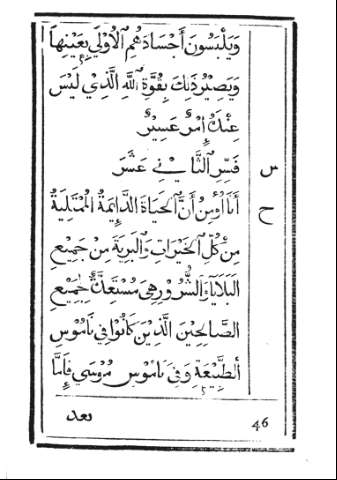 وَيَلْبَسُونَ أَجْسَادَهُمُ الْأُوْلَي بِعَيْنِهَا
وَيَصِيْرُ ذٰلِكَ بِقُوَّةِ اللّٰهِ الَّذِيْ لَيْسَ
عِنْدَهُ اِمْرٌ عَسِيْرٌ
س فَسِّرِ الثَّانِيْ عَشَرَ
ح أَنَا أُوْمِنُ أَنَّ الْحَيَاةَ الدَّايِمَةَ الْمُمْتَلِيَةَ
مِنْ كُلِّ الْخَيْرَاتِ وَالْبَرِيَةَ مِنْ جَمِيْعِ
الْبَلَايَا وَالشُّرُوْرِ هِيَ مُسْتَعَدَّةٌ لِجَمِيْعِ
الصَّالِحِيْنَ الَّذِيْنَ كَانُوْا فِي نَامُوْسِ
الطَّبِيْعَةِ وَفِيْ نَامُوْسِ مُوْسَي فَإِمَّا
بعد
46